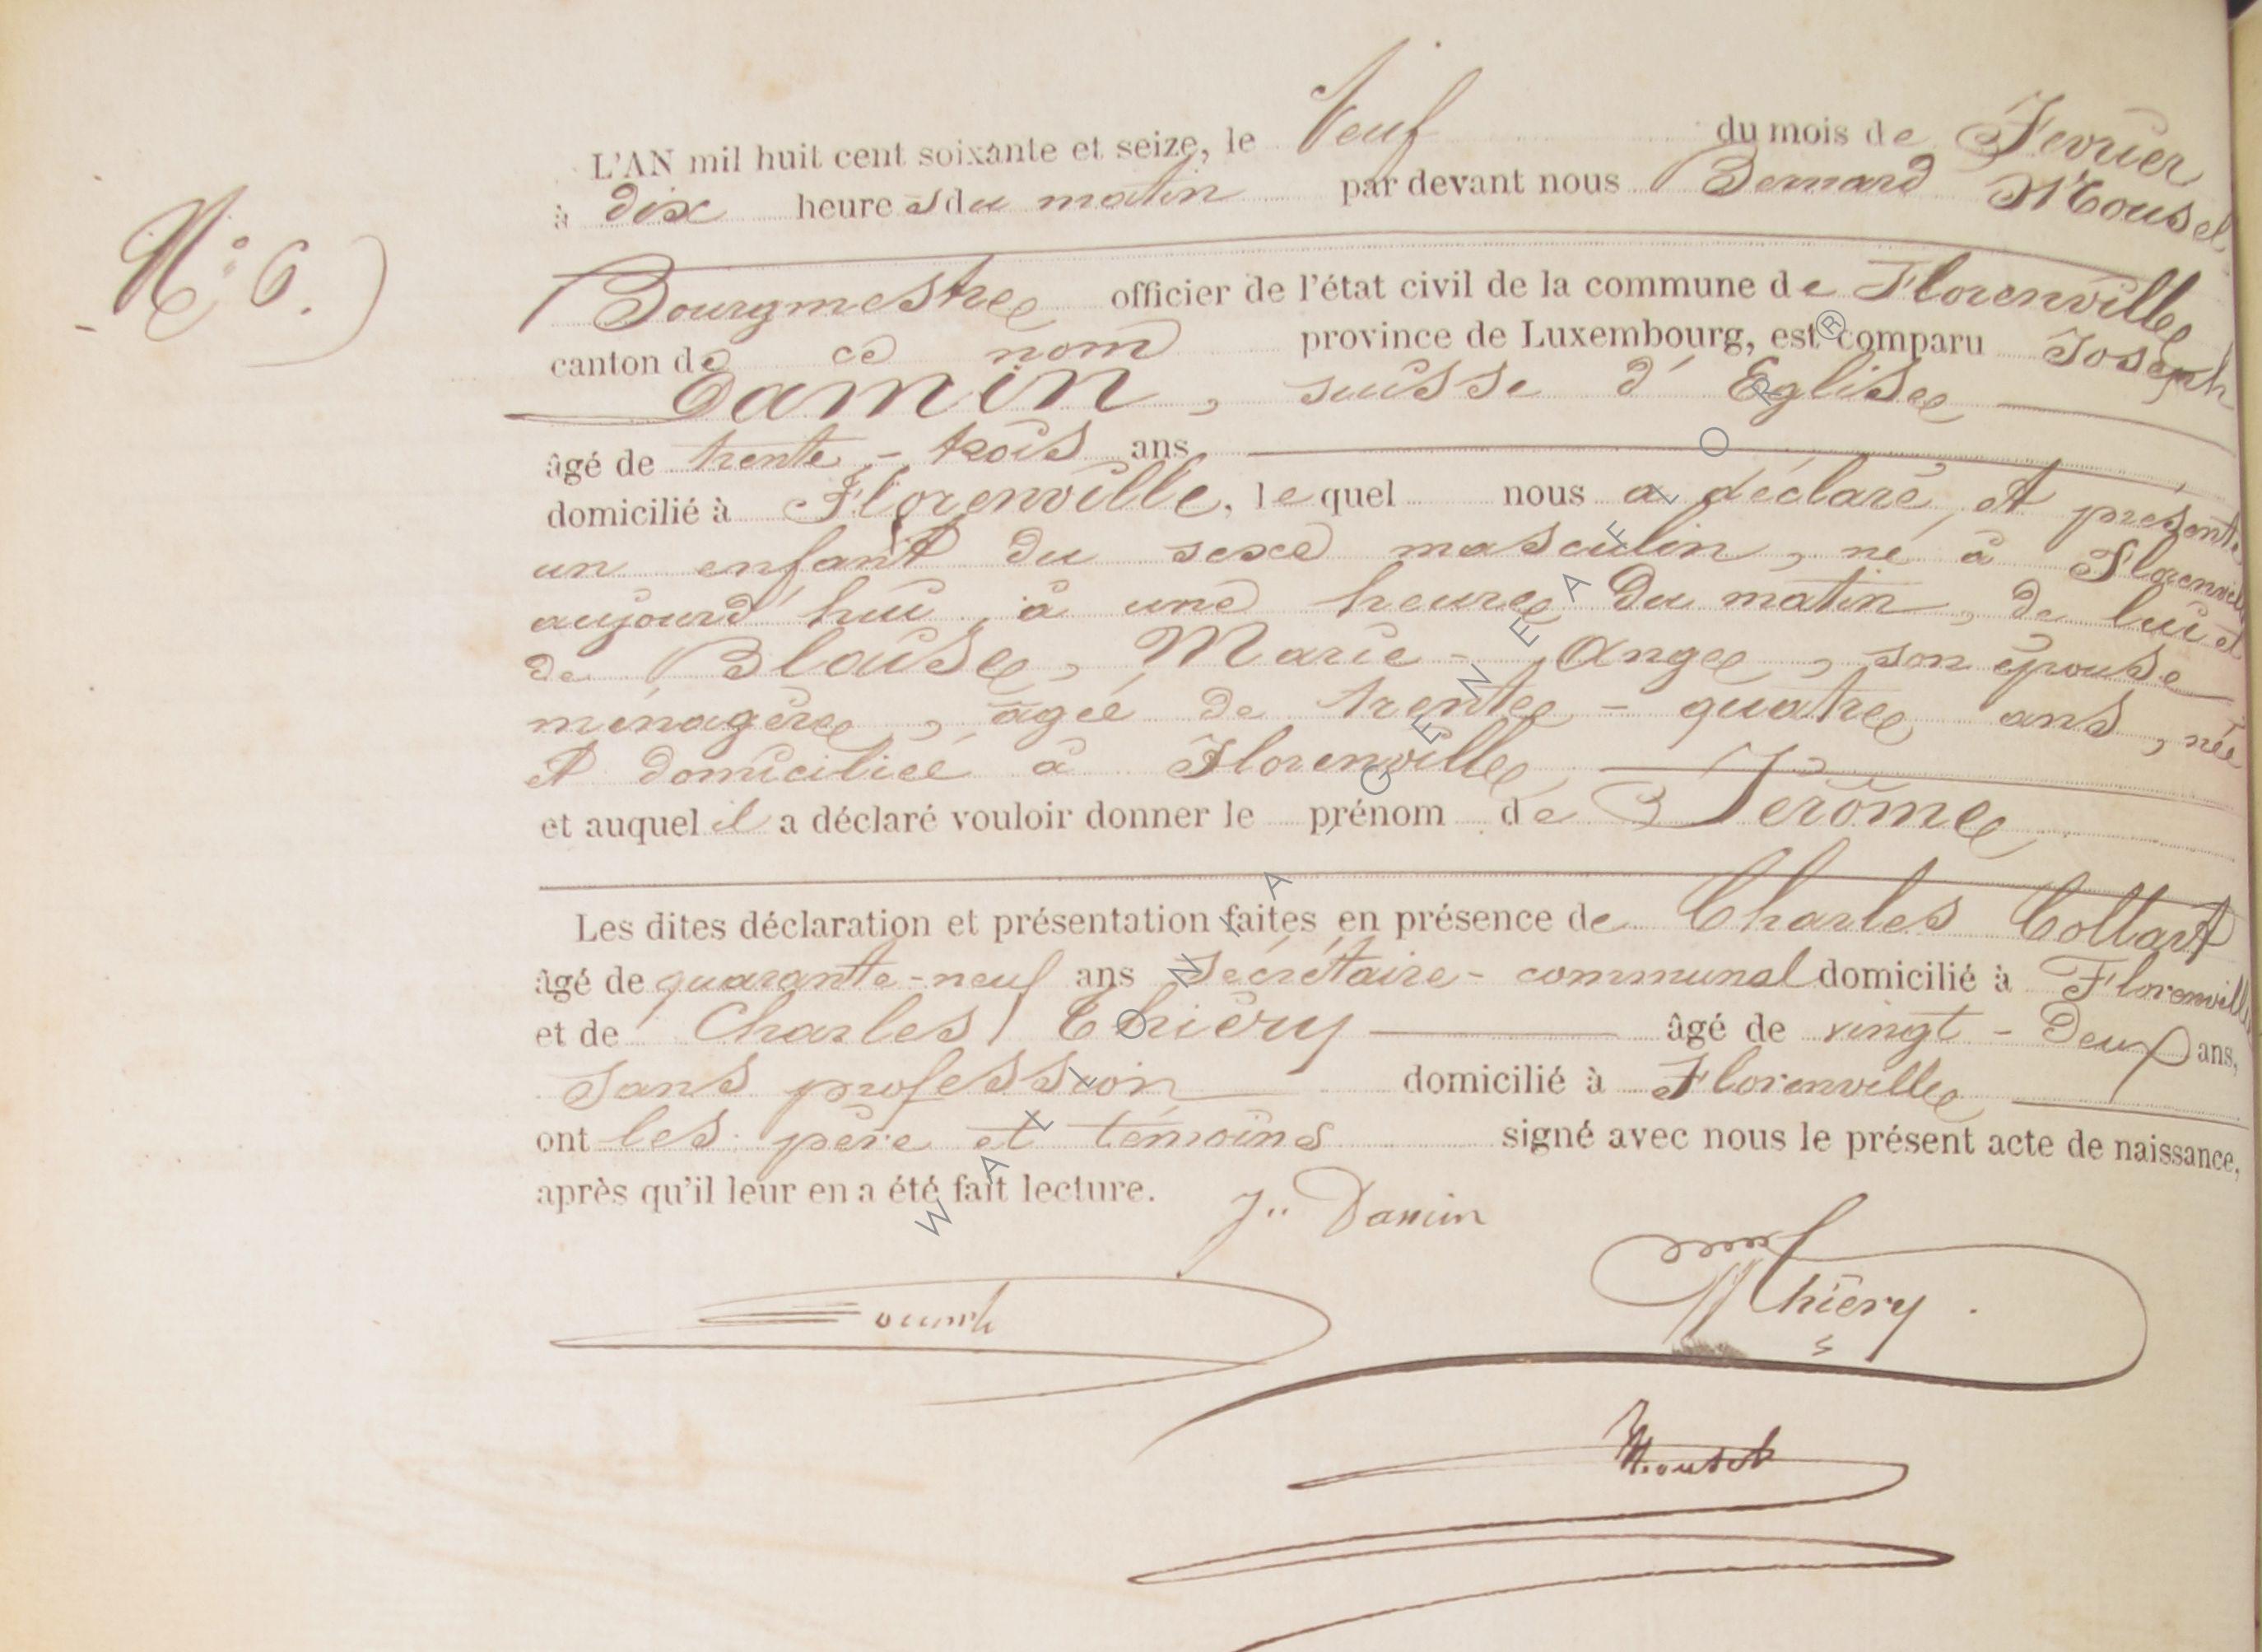 L'AN mil huit cent soixante et seize, le Neuf du mois de Fevrier
à dix heures du matin par devant nous Bernard Mousel
N° 6.
Bourgmestre officier de l'état civil de la commune de Florenville
canton de ce nom province de Luxembourg, est comparu Joseph
Damin, suisse d'Eglise
âgé de trente-trois ans
domicilié à Florenville, lequel nous a déclaré et présenté
un enfant du sexe masculin, né à Florenville
aujourd'hui, à une heure du matin, de lui et
de Blaise, Marie-Ange, son épouse
ménagère, âgée de trente-quatre ans, née
et domiciliée à Florenville
et auquel il a déclaré vouloir donner le prénom de Jérôme
Les dites déclaration et présentation faites en présence de Charles Collart
âgé de quarante-neuf ans Secrétaire-communal domicilié à Florenville
et de Charles Thiéry âgé de vingt-deux ans,
sans profession domicilié à Florenville
ont les père et témoins signé avec nous le présent acte de naissance,
après qu'il leur en a été fait lecture.
J. Damin
Thiéry
Mousel
WALLONIA GENEAFLOR ®